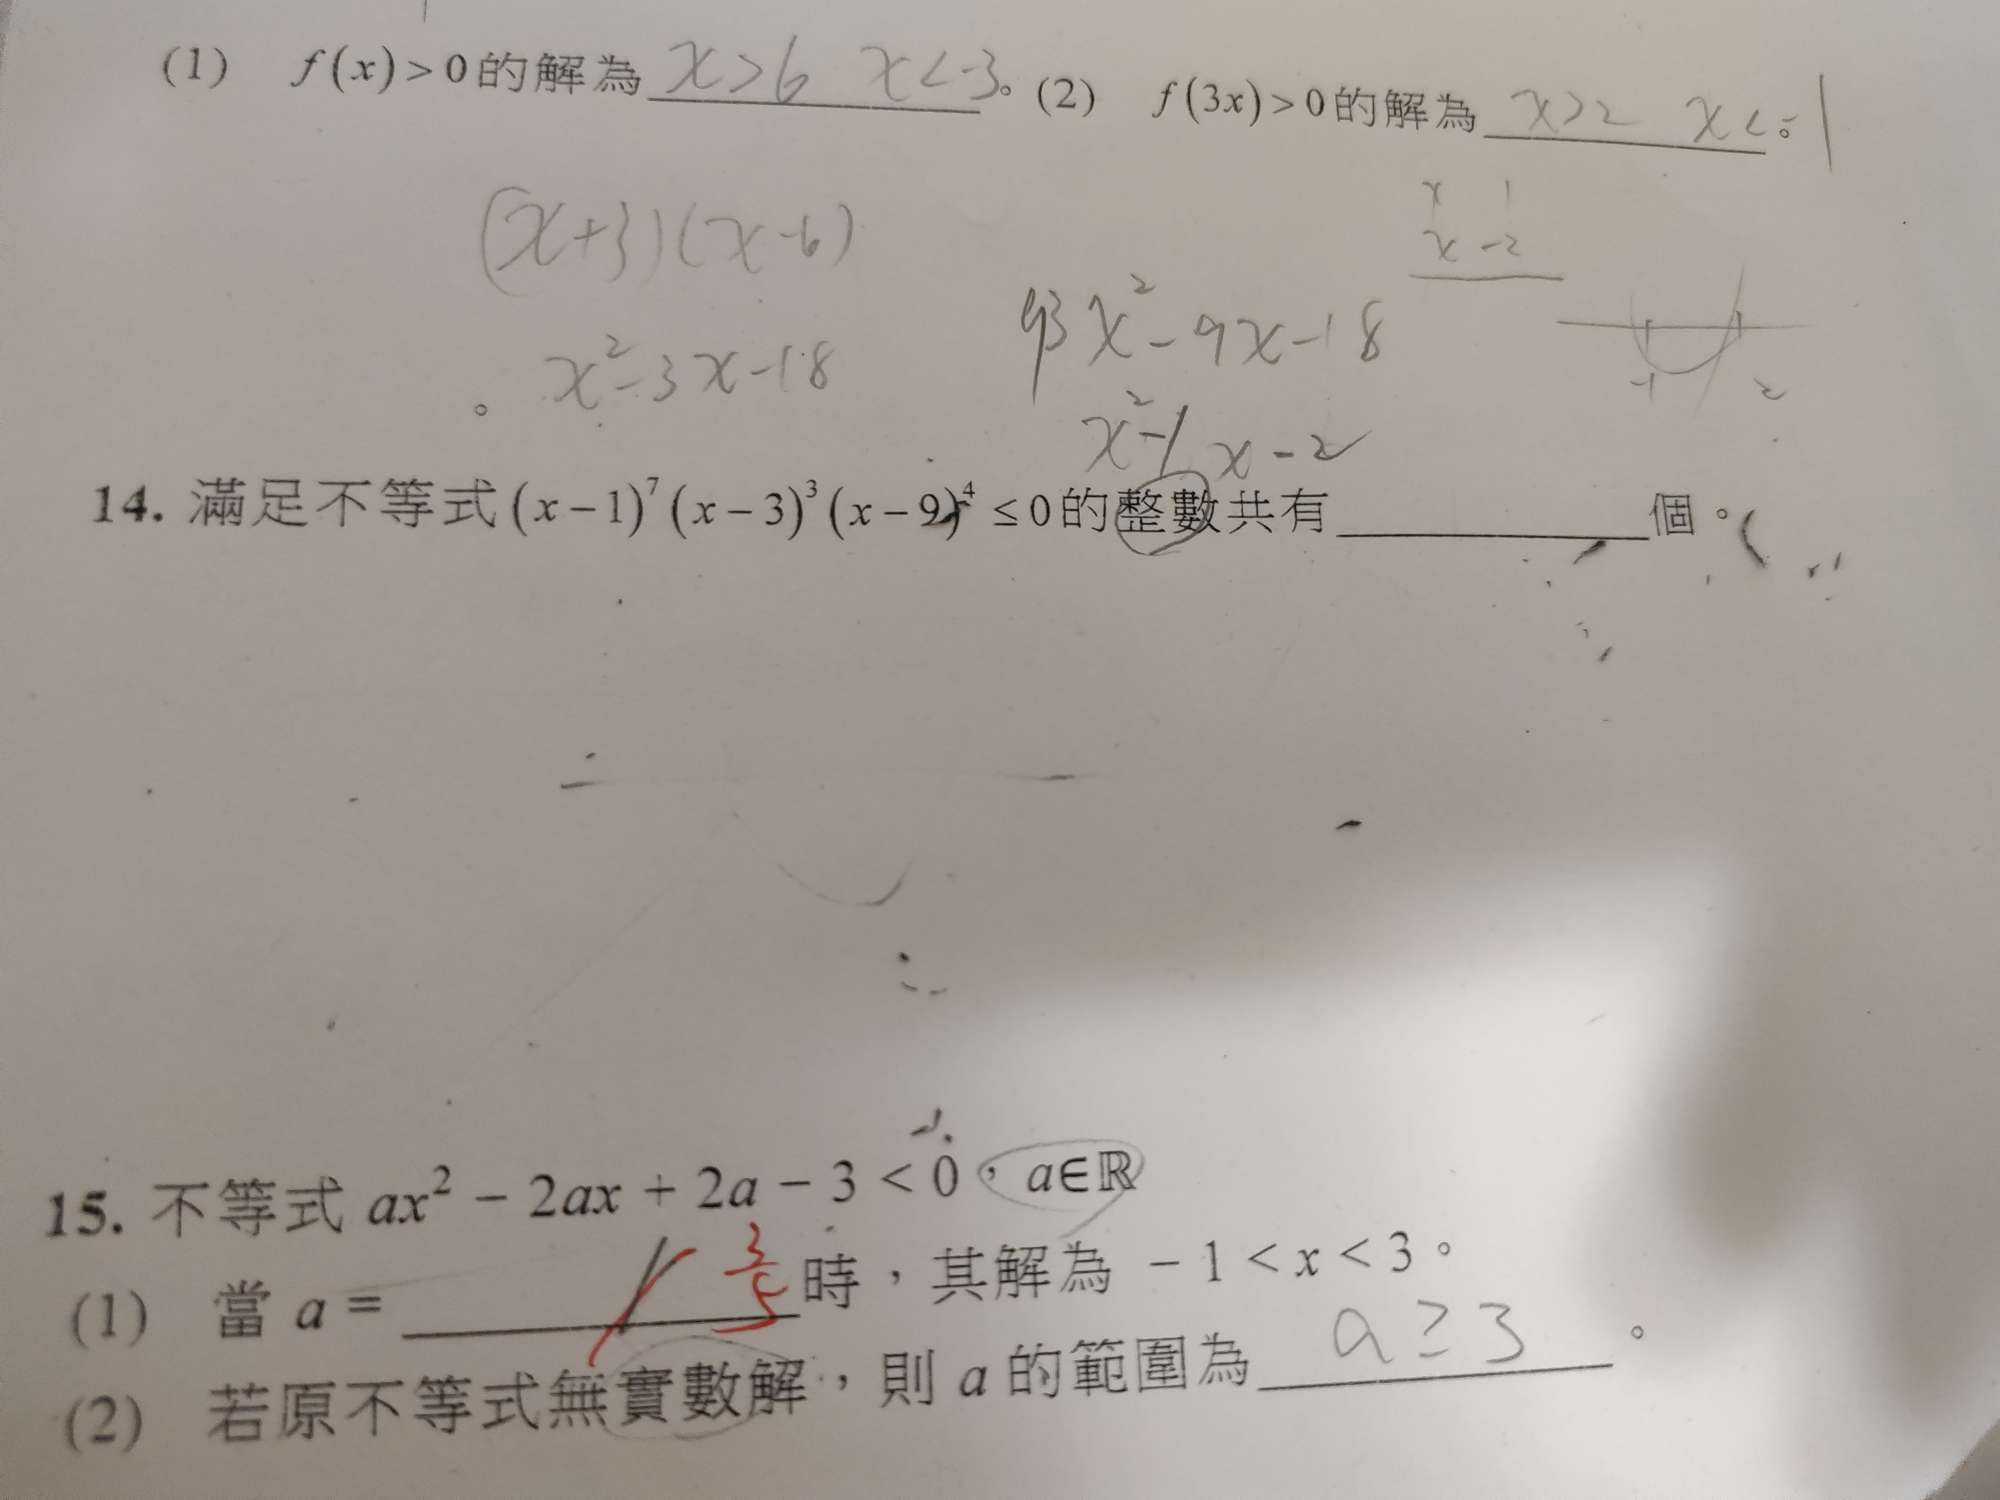 (1) f(x)>0的解為 x>6 x<-3。 (2) f(3x)>0的解為 x>2 x<-1。
(x+3)(x-6)
x 1
x -2
x²-3x-18
x²-9x-18
-1 2
x²-1x-2
14. 滿足不等式(x-1)⁷(x-3)³(x-9)⁴≤0的整數共有______個。
15. 不等式 ax² - 2ax + 2a - 3 < 0,a∈ℝ
(1) 當 a = 1 3/5 時,其解為 -1 < x < 3。
(2) 若原不等式無實數解,則 a 的範圍為 a≥3。